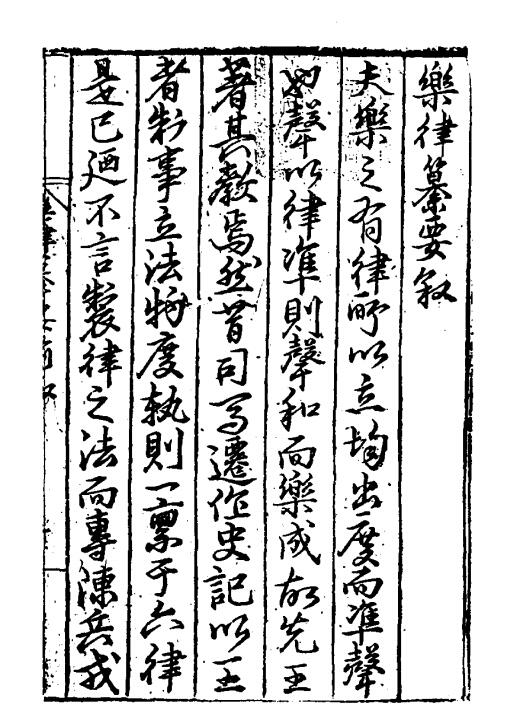 樂律纂要敘
夫樂之有律所以立均出度而準聲
也聲以律準則聲和而樂成故先王
著其教焉然昔司馬遷作史記以王
者制事立法物度軌則一稟于六律
是已廼不言製律之法而專陳兵戎